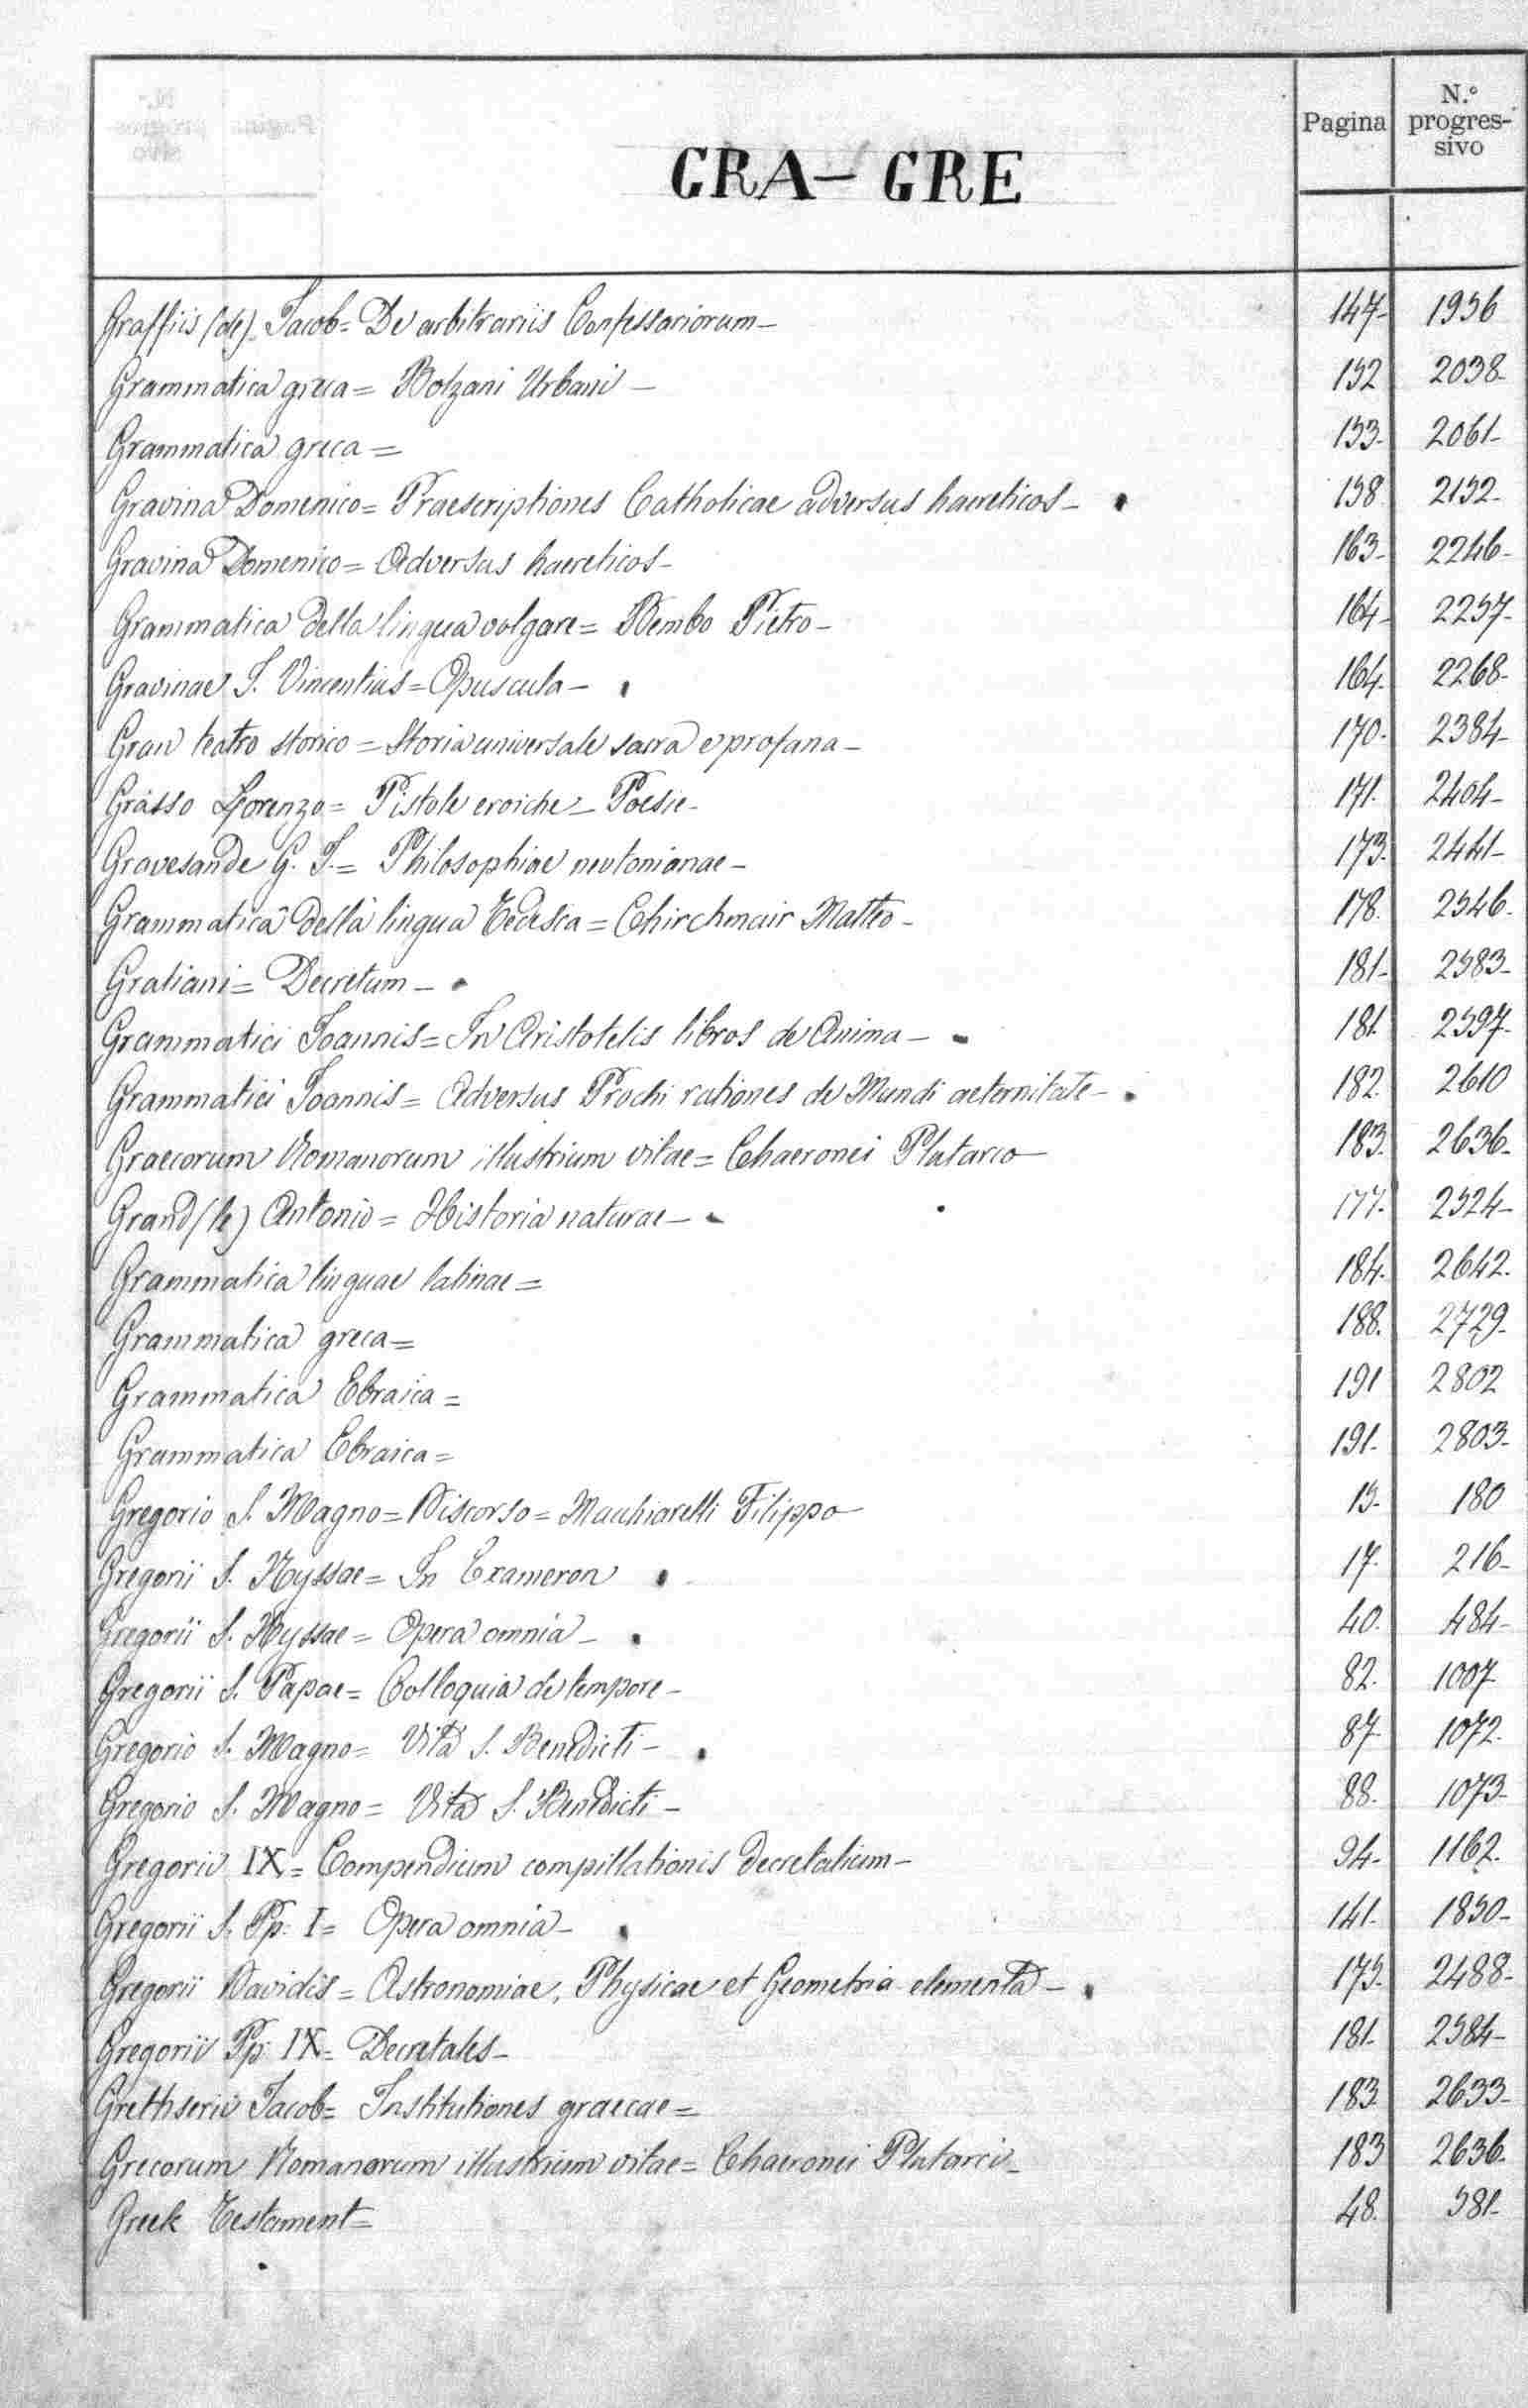 Pagina
N.º progres-
sivo
GRA - GRE
Graffiis (de) Jacob = De arbitrariis Confessariorum - 147- 1956
Grammatica greca = Bolzani Urbani - 152 2038-
Grammatica greca = 153- 2061-
Gravina Domenico = Praescriptiones Catholicae adversus haereticos - 158 2152-
Gravina Domenico = Adversus haereticos - 163- 2246-
Grammatica della lingua volgare = Bembo Pietro - 164- 2257-
Gravinae J. Vincentius = Opuscula - 164. 2268-
Gran teatro storico = Storia universale sacra e profana - 170- 2384-
Grasso Lorenzo = Pistole eroiche - Poesie - 171. 2404-
Gravesande G. J. = Philosophiae neutonianae - 173. 2441-
Grammatica della lingua Tedesca = Chirchmair Matteo - 178. 2546.
Gratiani = Decretum - 181- 2583-
Grammatici Joannis = In Aristotelis libros de Anima - 181. 2597-
Grammatici Joannis = Adversus Procli rationes de Mundi aeternitate - 182. 2610
Graecorum Romanorum illustrium vitae = Chaeronei Plutarco 183. 2636-
Grand (le) Antonio = Historia naturae - 177. 2524-
Grammatica linguae latinae = 184. 2642.
Grammatica greca = 188. 2729-
Grammatica Ebraica = 191 2802
Grammatica Ebraica = 191- 2803-
Gregorio S. Magno = Discorso = Macchiarelli Filippo 15- 180
Gregorii S. Nyssae = In Exameron 17. 216-
Gregorii S. Nyssae = Opera omnia - 40. 484-
Gregorii S. Papae = Colloquia de tempore - 82. 1007
Gregorio S. Magno = Vita S. Benedicti - 87- 1072.
Gregorio S. Magno = Vita S. Benedicti - 88. 1073-
Gregorio IX = Compendium compillationis decretalium - 94- 1162.
Gregorii S. Pp. I = Opera omnia - 141- 1850-
Gregorii Davidis = Astronomiae, Physicae et Geometria elementa - 175- 2488-
Gregorii Pp. IX = Decretales - 181- 2584-
Grethserii Jacob = Institutiones graecae = 183. 2633-
Grecorum Romanorum illustrium vitae = Chaeronei Plutarci - 183 2636-
Greek Testament = 48. 581-